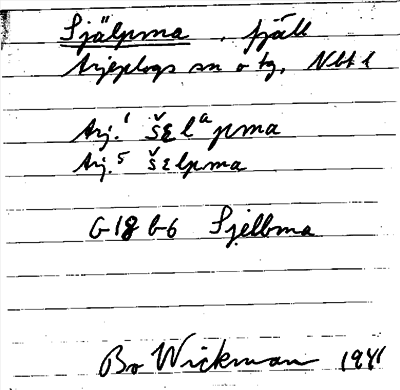 Själpma, fjäll
Arjeplogs sn o tg, Nbt l
Arj.¹ šɛlᵃpma
Arj.⁵ šɛlpma
G 18 b-6 Sjelbma
Bo Wickman 1941